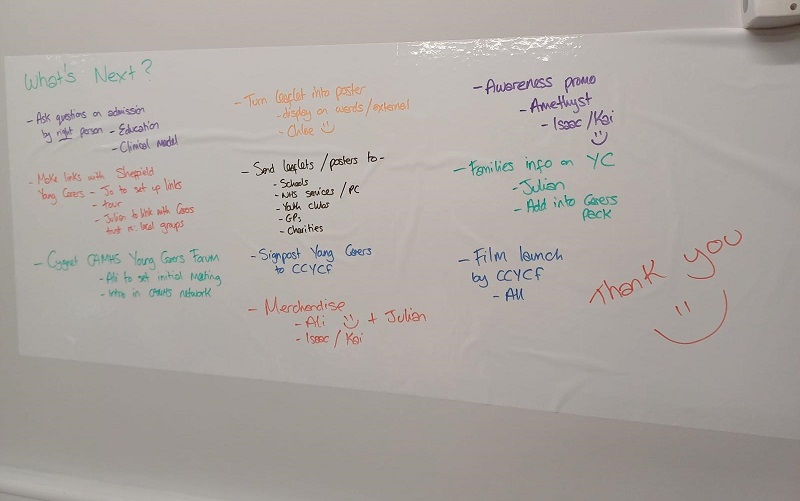 What's Next?
- Ask questions on admission
by right person - Education
- Clinical model
- Make links with Sheffield
Young Carers - Jo to set up links
- tour
- Julian to link with Carers
trust re: local groups
- Cygnet CAMHS Young Carers Forum
- Ali to set initial meeting
- Intro in CAMHS network
- Turn leaflet into poster
- display on words/external
- Chloe
- Send leaflets/posters to -
- Schools
- NHS services/PC
- Youth clubs
- GPs
- Charities
- Signpost Young Carers
to CCYCF
- Merchandise
- Ali + Julian
- Isaac/Kai
- Awareness promo
- Amethyst
- Isaac/Kai
- Families info on YC
- Julian
- Add into Carers
Pack
- Film launch
by CCYCF
- All
Thank you